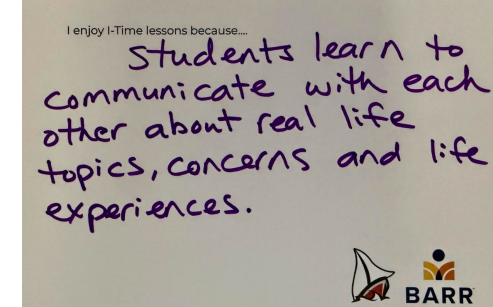 I enjoy I-Time lessons because....
Students learn to
communicate with each
other about real life
topics, concerns and life
experiences.
BARR